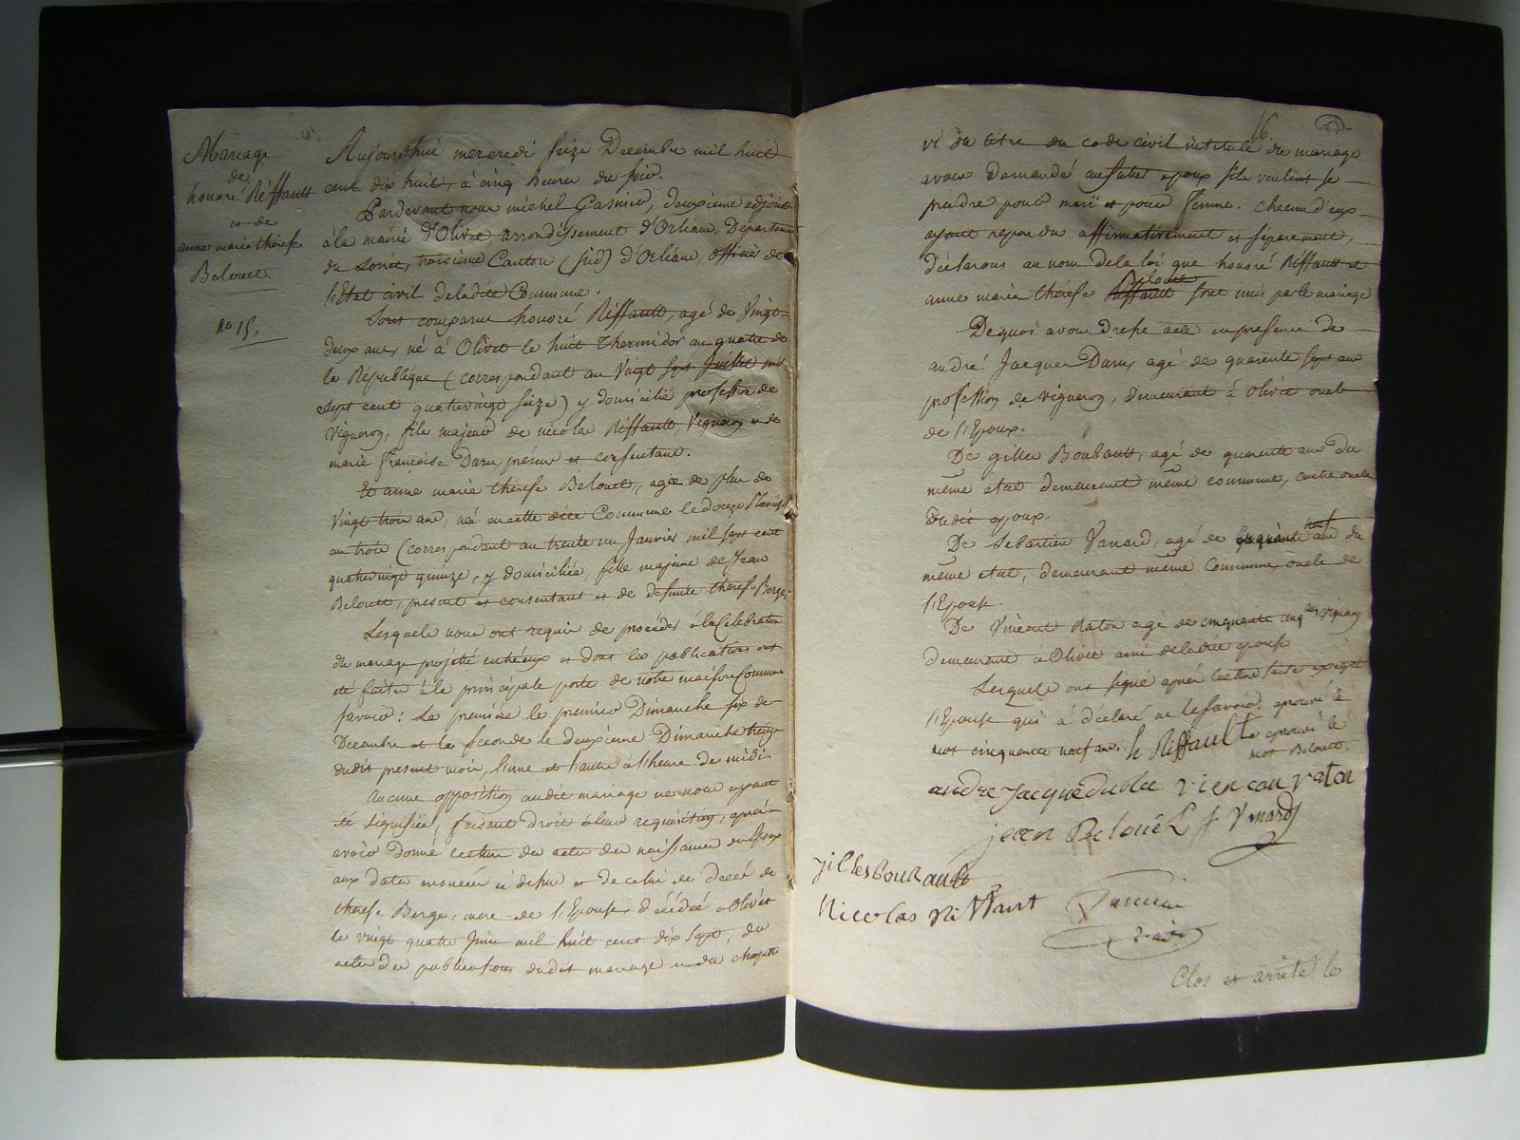 Mariage
de
honoré Riffault
et de
anne marie therese
Belouet
No 15.
Aujourdhui mercredi seize Decembre mil huit
cent dix huit, à cinq heures du soir.
Pardevant nous michel Gasnier, deuxieme adjoint
à la mairie d'Olivet arrondissement d'Orléans, Département
du Loiret, troisieme Canton (sud) d'Orléans, officier de
l'Etat civil de ladite Commune.
Sont comparus honoré Riffault, agé de Vingt
deux ans, né à Olivet le huit Thermidor an quatre de
la République (correspondant au Vingt Six Juillet mil
Sept cent quatrevingt seize) y domicilié profession de
Vigneron, fils majeur de nicolas Riffault, Vigneron et de
marie françoise Daru, présens et consentans.
Et anne marie therese Belouet, agée de plus de
Vingt trois ans, née en cette dite Commune le douze Pluviose
an trois (correspondant au trente un Janvier mil sept cent
quatrevingt quinze, y domiciliée, fille majeure de Jean
Belouet, present et consentant et de defunte therese Berge
Lesquels nous ont requis de procéder à la Celebration
du mariage projetté entr'eux et dont les publications ont
été faites à la principale porte de notre maison Commune
savoir: La premiere le premier Dimanche six de
Decembre et la seconde le deuxieme Dimanche treize
dudit present mois, l'une et l'autre à l'heure de midi
Aucune opposition audit mariage ne nous ayant
été signifiée, faisant droit à leur requisition, après
avoir donné lecture des actes des naissances des Epoux
aux dates enoncées ci dessus et de celui de décès de
therese Berge, mere de l'Epouse, décédée à Olivet
le vingt quatre Juin mil huit cent dix sept, des
actes des publications dudit mariage et du chapitre
16.
VI du titre du code civil intitulé du mariage
avons demandé aux futurs epoux s'ils veulent se
prendre pour mari et pour femme. chacun d'eux
ayant repondu affirmativement et séparement,
déclarons au nom de la loi que honoré Riffault et
Belouet
anne marie therese Riffault sont unis par le mariage
De quoi avons dressé acte en presence de
andré Jacques Daru, agé de quarante sept ans
profession de vigneron, demeurant à Olivet oncle
de l'Epoux.
De gilles Boubault, agé de quarante ans du
même etat demeurant même commune, oncle
dudit epoux.
De Sebastien Vanard, agé de cinquante neuf ans du
même etat, demeurant même Commune, oncle de
l'Epouse.
De Vincent Raton agé de cinquante cinq ans vigneron
demeurant à Olivet ami de ladite epouse
Lesquels ont signé après lecture faite excepté
l'Epouse qui à déclaré ne le savoir. aprouvé le
mot cinquante neuf ans. h Riffault aprouvé le
mot Belouet.
andre Jacque
jean Belouet
Nicolas Riffaut
Gasnier
Clos et arrêté le